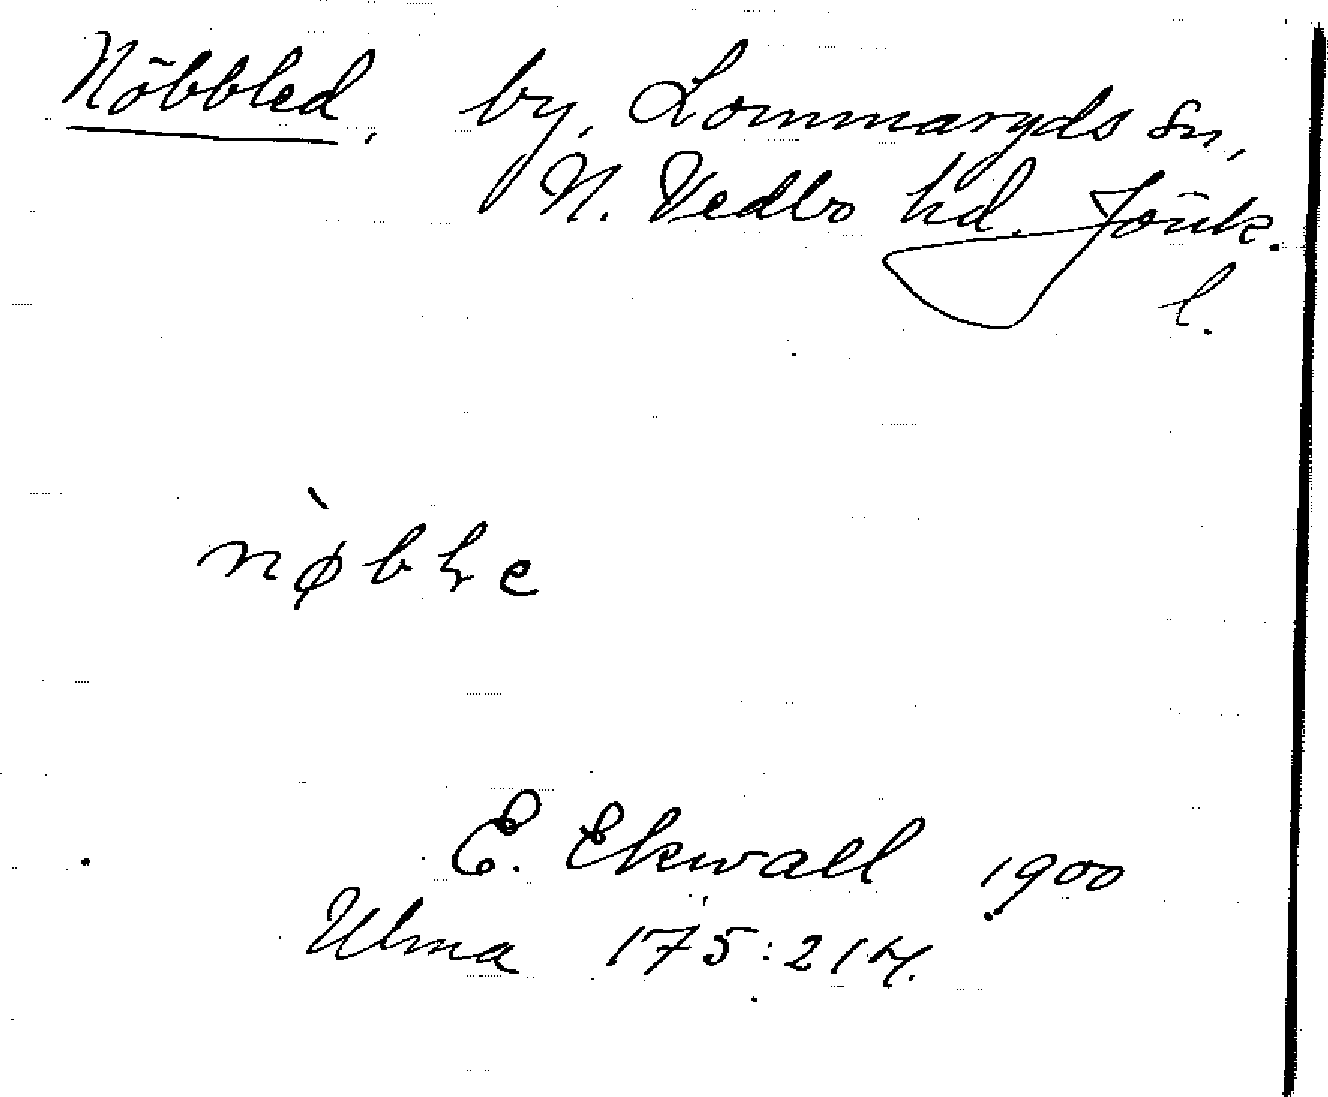 Nöbbled, by, Lommaryds sn,
N. Vedbo hd. Jönk.
l.
nø̀błe
E. Ekwall 1900
Ulma 175:217.